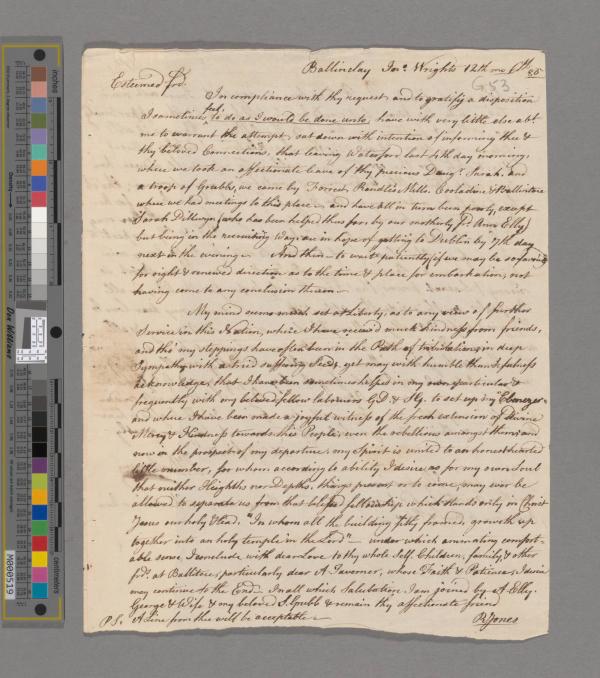 Ballinclay Jno. Wrights 12th mo 6th 85
G53
Esteemed frd.
In compliance with thy request and to gratify a disposition
feel,
I sometimes to do as I would be done unto, have with very little else abt
me to warrant the attempt, sat down with intention of informing thee &
thy beloved Connections, that leaving Waterford last 4th day morning,
where we took an affectionate leave of thy precious Daugr. Sarah. and
a troop of Grubbs, we came by Forrest, Randles Mills. Cooladine & Ballintore
where we had meetings to this place - and have all in turn been poorly, except
Sarah Dillwyn (who has been helped thus far, by our motherly fd. Ann Elly)
but being in the recruiting Way, are in hope of getting to Dublin by 7th day
next in the evening - And then - to wait patiently (if we may be so favoured)
for right & renewed direction as to the time & place for embarkation, not
having come to any conclusion therein -
My mind seems much set at liberty, as to any view of further
Service in this Nation, where I have received much kindness from friends,
and tho' my steppings have often been in the Path of tribulation, in deep
Sympathy with a tried suffering Seed, yet may with humble thankfulness
acknowledge, that I have been sometimes helped in my own particular &
frequently with my beloved fellow labourers G D. & Sy. to set up my "Ebenezer"
and where I have been made a joyful witness of the fresh extension of Divine
Mercy & Kindness towards this People, even the rebellious amongst them, and
now in the prospect of my departure, my Spirit is united to an honest hearted
little number, for whom according to ability I desire, as for my own Soul
that neither Heighths nor Depths, things present or to come, may ever be
allowed to separate us from that blessed fellowship which stands only in Christ
Jesus our holy Head. "In whom all the building fitly framed, groweth up
together into an holy temple in the Lord" - under which animating comfort-
able sense I conclude with dear Love to thy whole Self, Children, family, & other
frds. at particularly dear A Taverner, whose Faith & Patience, I desire
may continue to the End - In all which Salutation I am joined by A Elly.
George & Wife & my beloved S. Grubb & remain thy affectionate friend
R Jones
P.S. A Line from thee will be acceptable -
inches
centimeters
Don Williams
M000519